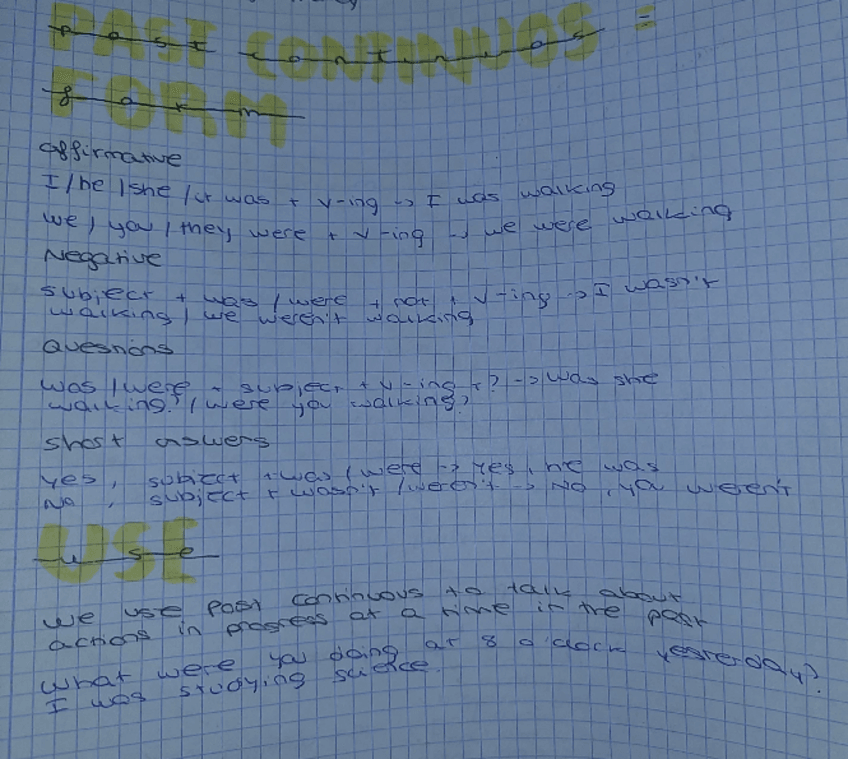 PAST CONTINUOS =
past continuos
FORM
form
affirmative
I/he/she/it was + v-ing -> I was walking
we/you/they were + v-ing -> we were walking
Negative
subject + was/were + not + v-ing -> I wasn't
walking/we weren't walking
Quesnions
was/were + subject + v-ing + ? -> was she
walking?/were you walking?
short answers
yes, subject + was/were -> yes, he was
No, subject + wasn't/weren't -> No, you weren't
USE
use
we use past continuous to talk about
actions in progress at a time in the past
what were you doing at 8 o'clock yesterday?
I was studying science.